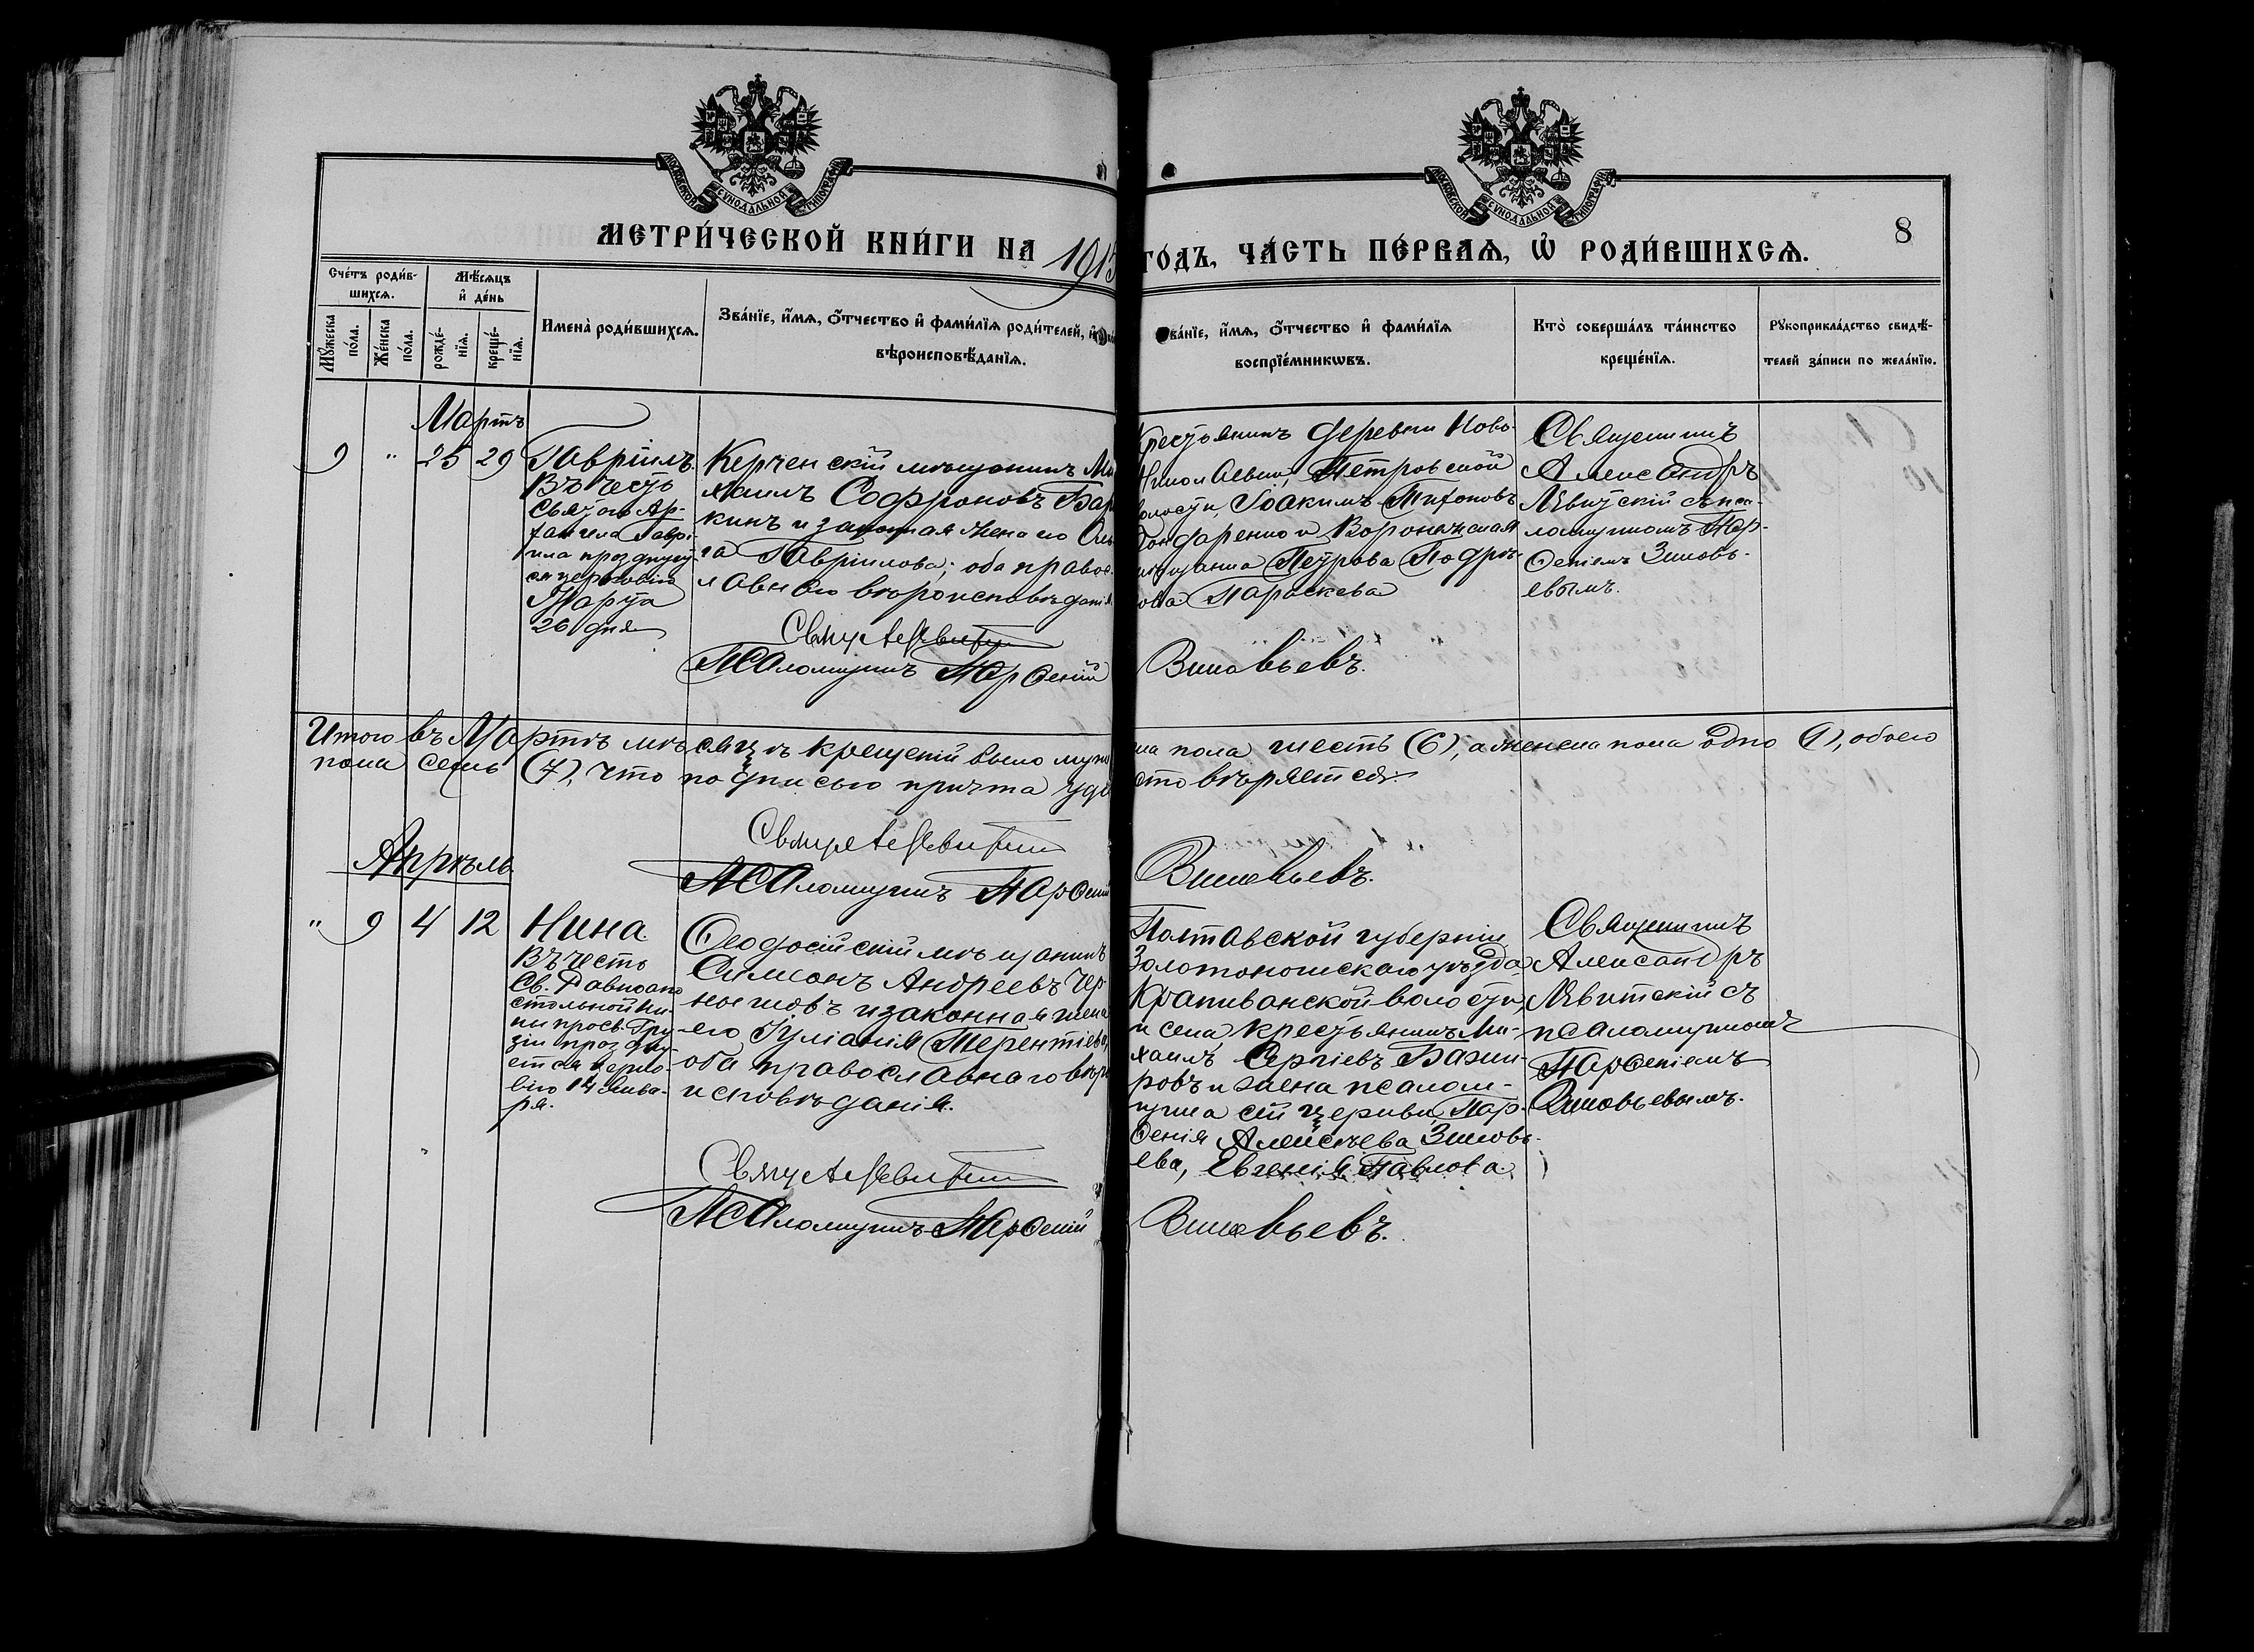 МОСКОВСКОЙ СУНОДАЛЬНОЙ ТИПОГРАФІИ
МОСКОВСКОЙ СУНОДАЛЬНОЙ ТИПОГРАФІИ
МЕТРИ́ЧЕСКОЙ КНИ́ГИ НА 1915
ГОДЪ, ЧА́СТЬ ПЕ́РВАѦ, Ѡ҆ РОДИ́ВШИХСѦ.
8
Сче́тъ роди́в-
шихсѧ.
Мѣ́сѧцъ
и҆ де́нь
Мꙋ́жеска
по́ла.
Же́нска
по́ла.
рожде́-
нїѧ.
креще́-
нїѧ.
Имена̀ роди́вшихсѧ.
Зва́нїе, и҆́мѧ, ѻ҆́тчество и҆ фами́лїѧ роди́телей, и҆
вѣроисповѣ́данїѧ.
ва́нїе, и҆́мѧ, ѻ҆́тчество и҆ фами́лїѧ
воспрїе́мникѡвъ.
Кто̀ соверша́лъ та́инство
креще́нїѧ.
Рꙋкоприкла́дство свидѣ́-
телей за́писи по жела́нїю.
Мартъ
9 " 25 29
Гавріилъ
Въ честь
Святого Ар-
хангела Гаврі-
ила празднует-
ся церковію
Марта
26 дня
Керченскій мѣщанинъ Ми
хаилъ Софроновъ Бар
кинъ и законная жена его Оль
га Гавріилова; оба правос
лавного вѣроисповѣданія.
Крестьянинъ деревни Ново-
Николаевки, Петровской
волости, Іоакимъ Тихоновъ
Бондаренко и Воронежская
мѣщанка Петрова Подрѣ-
зова Параскева
Священникъ
Александръ
Лѣвитскій съ пса-
ломщикомъ Пар-
ѳеніемъ Зиновь-
евымъ.
Свящ. А. Лѣвитскій
Псаломщикъ Парѳеній
Зиновьевъ.
Итого въ Мартѣ мѣсяцѣ крещеній было муж
ска пола шесть (6), а женска пола одно (1), обоего
пола семь (7), что подписью причта удо
стовѣряется.
Свящ. А. Лѣвитскій
Псаломщикъ Парѳеній
Зиновьевъ.
Апрѣль
" 9 4 12
Нина
Въ честь
Св. Равноапо
стольной Ни-
ны просв. Гру-
зіи праздну-
ется церко-
вію 14 Янва-
ря.
Ѳеодосійскій мѣщанинъ
Симеонъ Андреевъ Чер-
ноусовъ и законная жена
его Іуліанія Терентіева,
оба православнаго вѣро
исповѣданія.
Полтавской губерніи
Золотоношскаго уѣзда
Крапиванской волости,
и села крестьянинъ Ми-
хаилъ Сергіевъ Бажи-
ровъ и жена псалом-
щика сей церкви Пар-
ѳенія Алексѣева Зиновь-
ева, Евгенія Павлова
Священникъ
Александръ
Лѣвитскій съ
псаломщикомъ
Парѳеніемъ
Зиновьевымъ.
Свящ. А. Лѣвитскій
Псаломщикъ Парѳеній
Зиновьевъ.